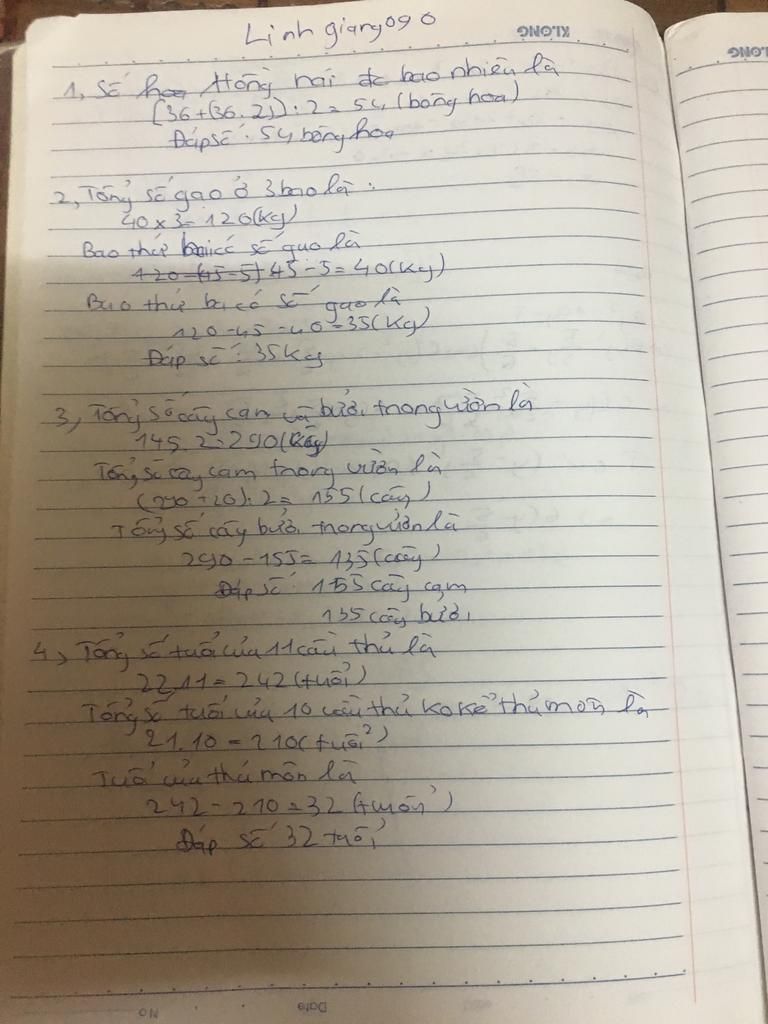 Linh giang090
KLONG
KLONG
1, Số hoa Hồng hái đc bao nhiên là
(36+(36.2)):2=54 (bông hoa)
Đáp số: 54 bông hoa
2, Tổng số gạo ở 3 bao là:
40x3=120(kg)
Bao thứ hai có số gạo là
120-(45-5) 45-5=40(kg)
Bao thứ ba có số gạo là
120-45-40=35(kg)
Đáp số: 35kg
3, Tổng số cây cam và bưởi trong vườn là
145.2=290(cây)
Tổng số cây cam trong vườn là
(290+20):2=155(cây)
Tổng số cây bưởi trong vườn là
290-155=135(cây)
Đáp số: 155 cây cam
135 cây bưởi
4, Tổng số tuổi của 11 cầu thủ là
22.11=242(tuổi)
Tổng số tuổi của 10 cầu thủ ko kể thủ môn là
21.10=210(tuổi)
Tuổi của thủ môn là
242-210=32(tuổi)
Đáp số 32 tuổi
No Date